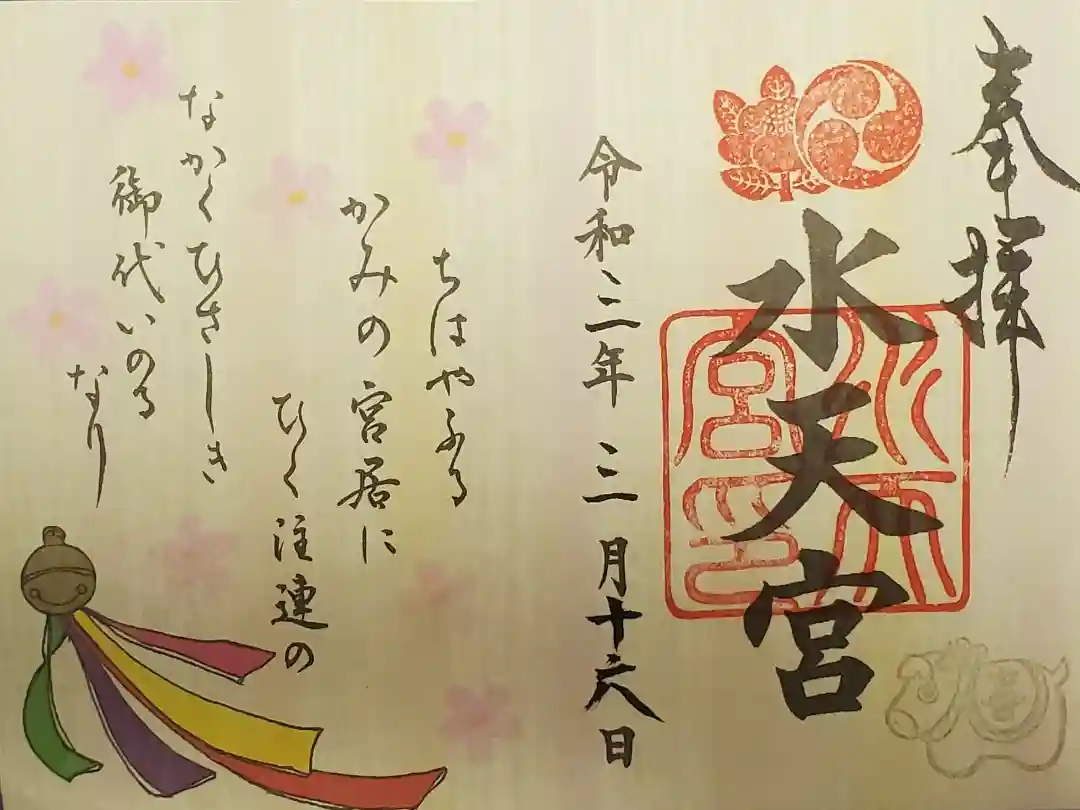 奉拝
水天宮
水天宮印
令和三年三月十六日
ちはやふる
かみの宮居に
ひく注連の
なかくひさしき
御代いのる
なり